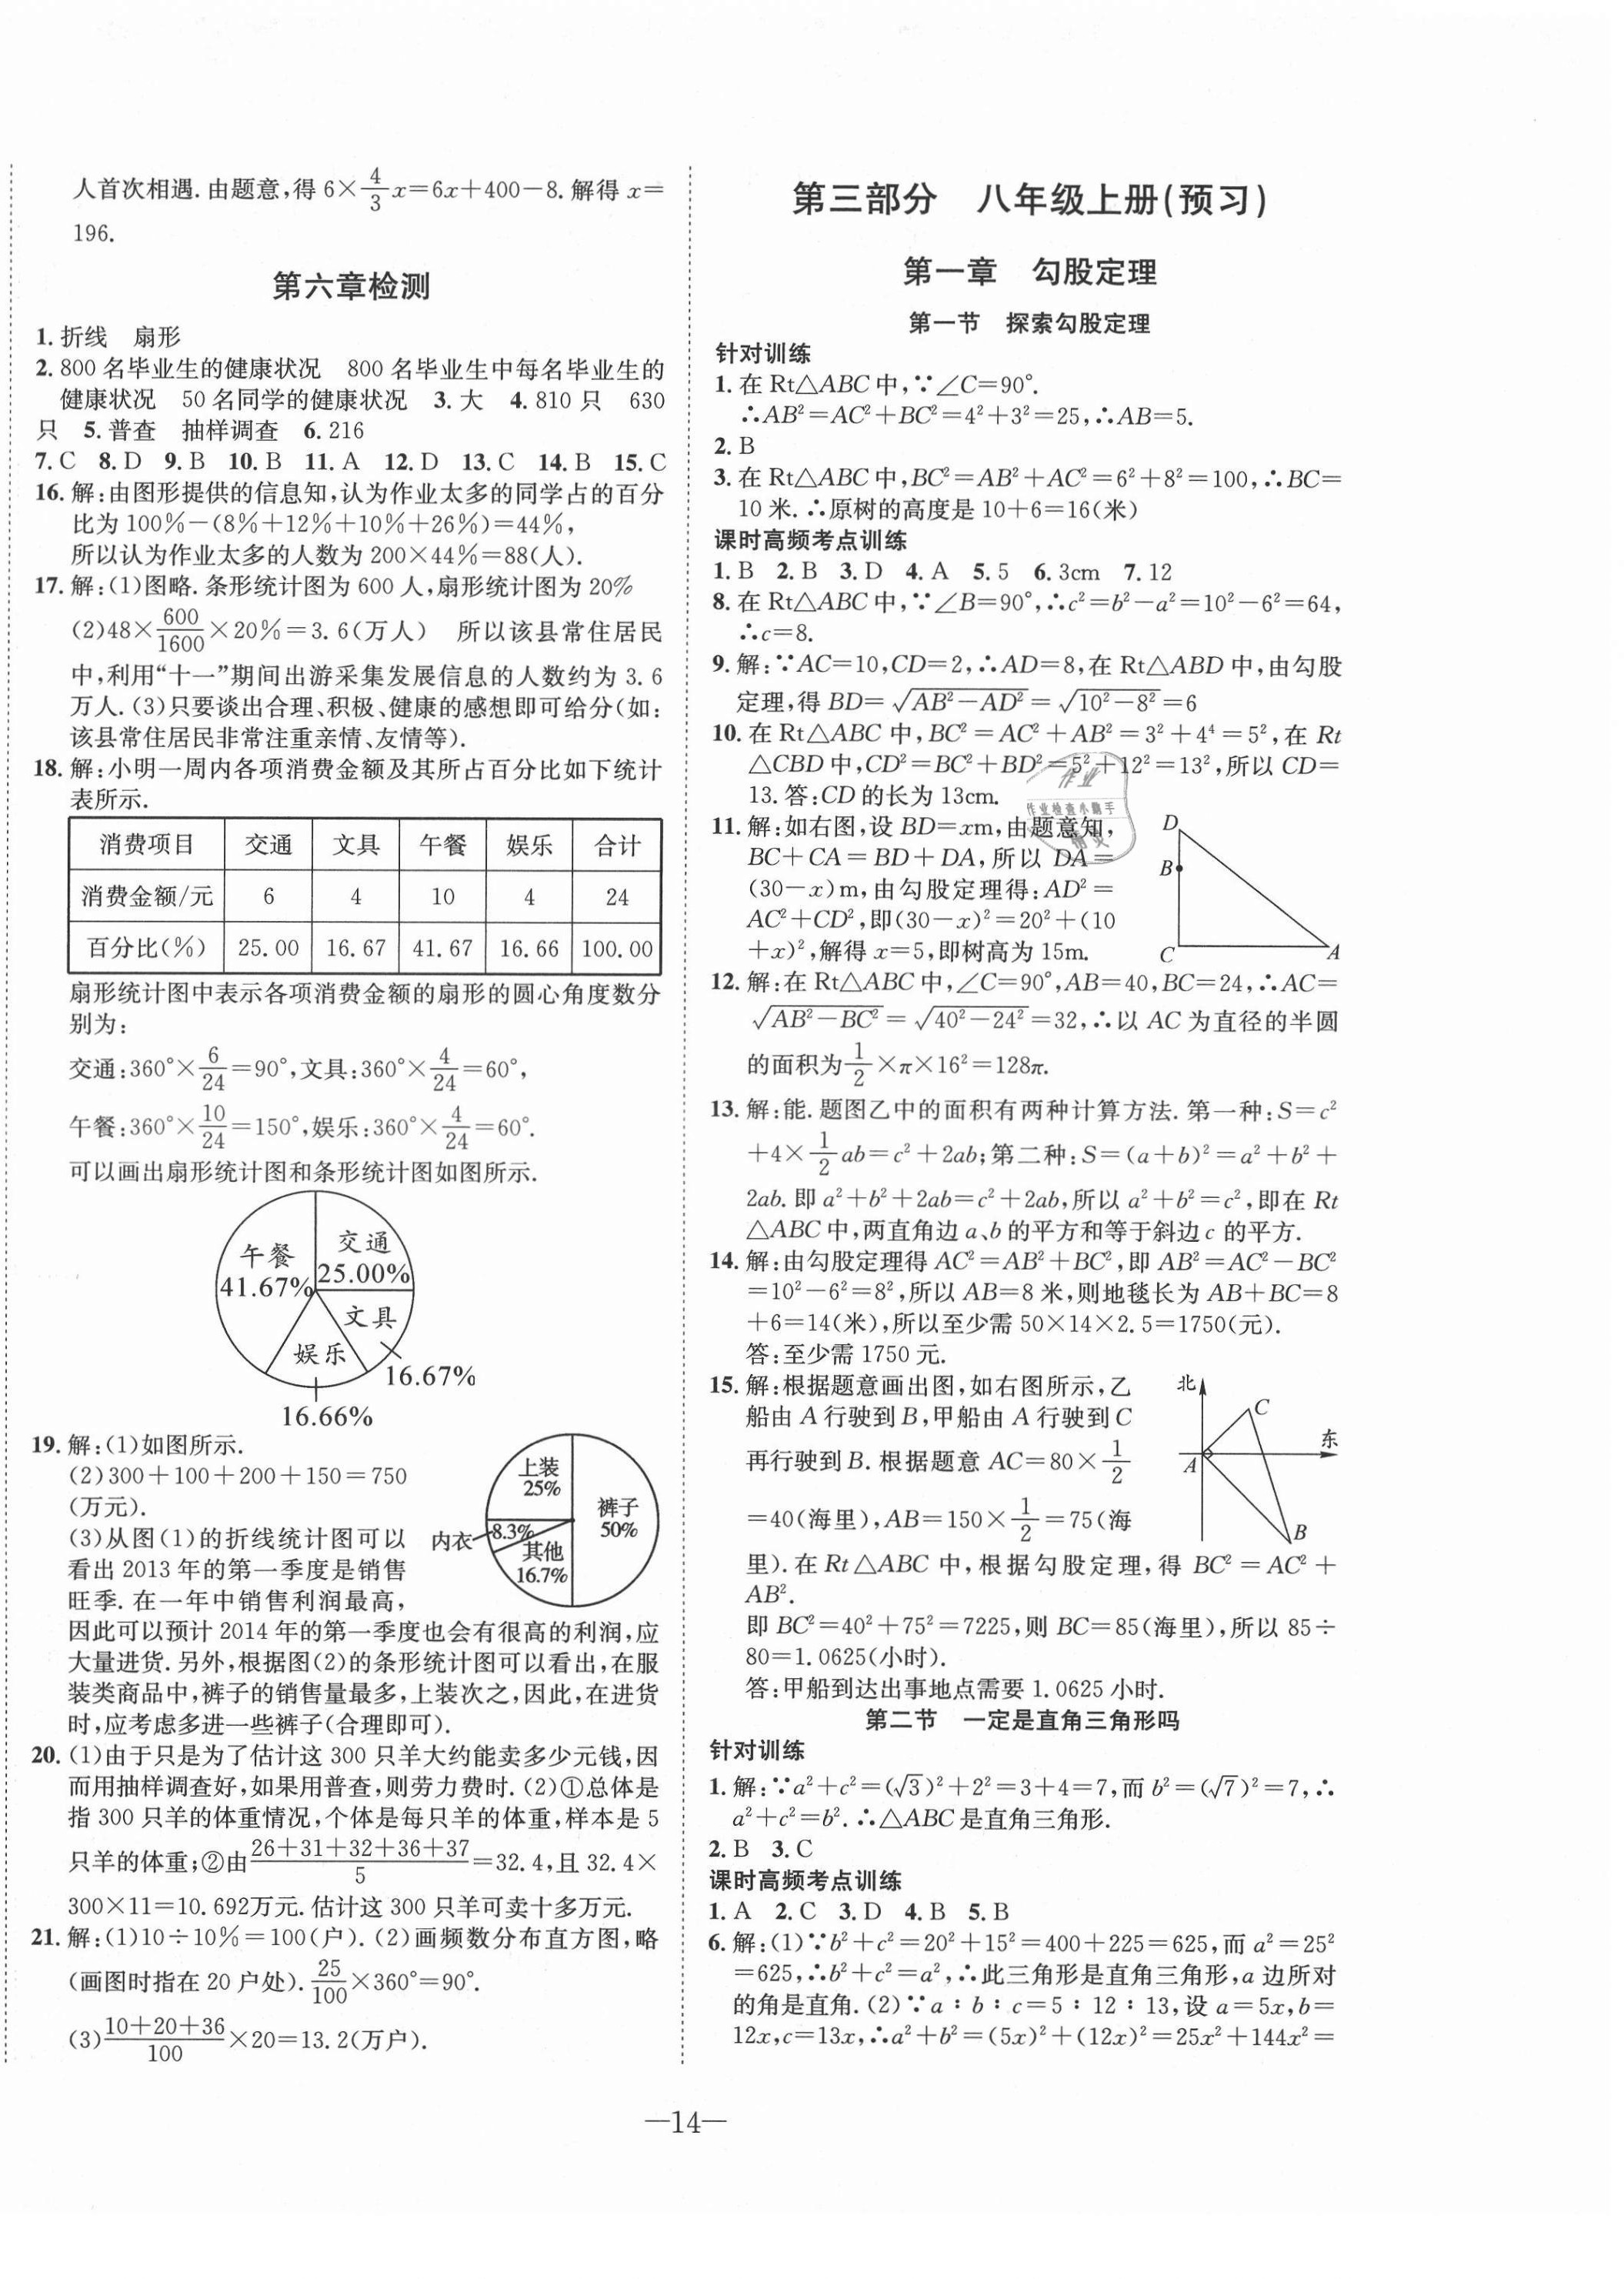 人首次相遇.由题意,得 6×4/3x=6x+400-8.解得 x=
196.
第六章检测
1.折线 扇形
2.800名毕业生的健康状况 800名毕业生中每名毕业生的
健康状况 50名同学的健康状况 3.大 4.810只 630
只 5.普查 抽样调查 6.216
7.C 8.D 9.B 10.B 11.A 12.D 13.C 14.B 15.C
16.解:由图形提供的信息知,认为作业太多的同学占的百分
比为100%-(8%+12%+10%+26%)=44%,
所以认为作业太多的人数为200×44%=88(人).
17.解:(1)图略.条形统计图为600人,扇形统计图为20%
(2)48×600/1600×20%=3.6(万人) 所以该县常住居民
中,利用“十一”期间出游采集发展信息的人数约为3.6
万人.(3)只要谈出合理、积极、健康的感想即可给分(如:
该县常住居民非常注重亲情、友情等).
18.解:小明一周内各项消费金额及其所占百分比如下统计
表所示.
消费项目 交通 文具 午餐 娱乐 合计
消费金额/元 6 4 10 4 24
百分比(%) 25.00 16.67 41.67 16.66 100.00
扇形统计图中表示各项消费金额的扇形的圆心角度数分
别为:
交通:360°×6/24=90°,文具:360°×4/24=60°,
午餐:360°×10/24=150°,娱乐:360°×4/24=60°.
可以画出扇形统计图和条形统计图如图所示.
午餐
41.67%
交通
25.00%
文具
娱乐
16.67%
16.66%
19.解:(1)如图所示.
(2)300+100+200+150=750
(万元).
(3)从图(1)的折线统计图可以
看出2013年的第一季度是销售
旺季.在一年中销售利润最高,
上装
25%
裤子
50%
内衣
8.3%
其他
16.7%
因此可以预计2014年的第一季度也会有很高的利润,应
大量进货.另外,根据图(2)的条形统计图可以看出,在服
装类商品中,裤子的销售量最多,上装次之,因此,在进货
时,应考虑多进一些裤子(合理即可).
20.(1)由于只是为了估计这300只羊大约能卖多少元钱,因
而用抽样调查好,如果用普查,则劳力费时.(2)①总体是
指300只羊的体重情况,个体是每只羊的体重,样本是5
只羊的体重;②由(26+31+32+36+37)/5=32.4,且32.4×
300×11=10.692万元.估计这300只羊可卖十多万元.
21.解:(1)10÷10%=100(户).(2)画频数分布直方图,略
(画图时指在20户处).25/100×360°=90°.
(3)(10+20+36)/100×20=13.2(万户).
第三部分 八年级上册(预习)
第一章 勾股定理
第一节 探索勾股定理
针对训练
1.在Rt△ABC中,∵∠C=90°.
∴AB²=AC²+BC²=4²+3²=25,∴AB=5.
2.B
3.在Rt△ABC中,BC²=AB²+AC²=6²+8²=100,∴BC=
10米.∴原树的高度是10+6=16(米)
课时高频考点训练
1.B 2.B 3.D 4.A 5.5 6.3cm 7.12
8.在Rt△ABC中,∵∠B=90°,∴c²=b²-a²=10²-6²=64,
∴c=8.
9.解:∵AC=10,CD=2,∴AD=8,在Rt△ABD中,由勾股
定理,得BD=√(AB²-AD²)=√(10²-8²)=6
10.在Rt△ABC中,BC²=AC²+AB²=3²+4⁴=5²,在Rt
△CBD中,CD²=BC²+BD²=5²+12²=13²,所以CD=
13.答:CD的长为13cm.
作业
作业检查小助手
精灵
11.解:如右图,设BD=xm,由题意知,
BC+CA=BD+DA,所以DA=
(30-x)m,由勾股定理得:AD²=
AC²+CD²,即(30-x)²=20²+(10
+x)²,解得x=5,即树高为15m.
D
B
C
A
12.解:在Rt△ABC中,∠C=90°,AB=40,BC=24,∴AC=
√(AB²-BC²)=√(40²-24²)=32,∴以AC为直径的半圆
的面积为1/2×π×16²=128π.
13.解:能.题图乙中的面积有两种计算方法.第一种:S=c²
+4×1/2ab=c²+2ab;第二种:S=(a+b)²=a²+b²+
2ab.即a²+b²+2ab=c²+2ab,所以a²+b²=c²,即在Rt
△ABC中,两直角边a、b的平方和等于斜边c的平方.
14.解:由勾股定理得AC²=AB²+BC²,即AB²=AC²-BC²
=10²-6²=8²,所以AB=8米,则地毯长为AB+BC=8
+6=14(米),所以至少需50×14×2.5=1750(元).
答:至少需1750元.
15.解:根据题意画出图,如右图所示,乙
船由A行驶到B,甲船由A行驶到C
再行驶到B.根据题意AC=80×1/2
=40(海里),AB=150×1/2=75(海
北
C
东
A
B
里).在Rt△ABC中,根据勾股定理,得BC²=AC²+
AB².
即BC²=40²+75²=7225,则BC=85(海里),所以85÷
80=1.0625(小时).
答:甲船到达出事地点需要1.0625小时.
第二节 一定是直角三角形吗
针对训练
1.解:∵a²+c²=(√3)²+2²=3+4=7,而b²=(√7)²=7,∴
a²+c²=b².∴△ABC是直角三角形.
2.B 3.C
课时高频考点训练
1.A 2.C 3.D 4.B 5.B
6.解:(1)∵b²+c²=20²+15²=400+225=625,而a²=25²
=625,∴b²+c²=a²,∴此三角形是直角三角形,a边所对
的角是直角.(2)∵a∶b∶c=5∶12∶13,设a=5x,b=
12x,c=13x,∴a²+b²=(5x)²+(12x)²=25x²+144x²=
—14—